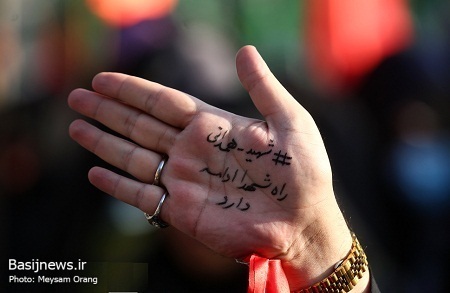 #شهید-همدانی
راه شهدا ادامه
دارد
Basijnews.ir
Photo: Meysam Orang